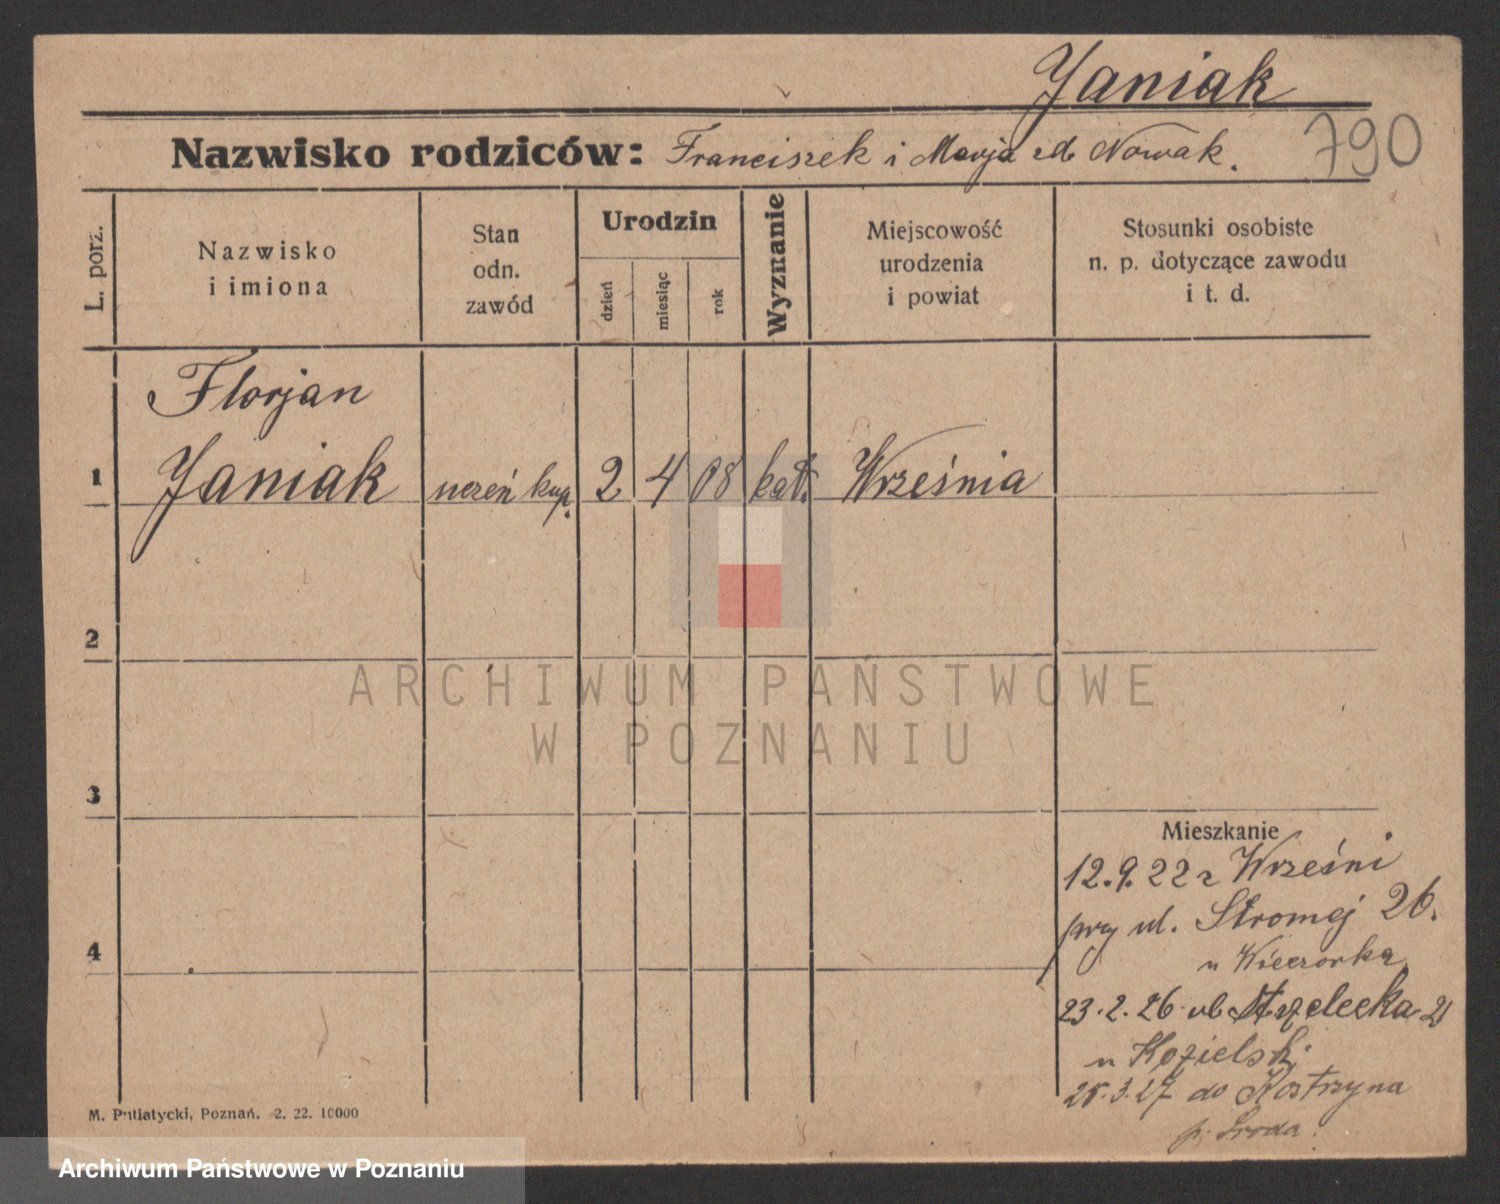 Janiak
790
Nazwisko rodziców: Franciszek i Marja zd. Nowak.
L. porz.
Nazwisko
i imiona
Stan
odn.
zawód
Urodzin
dzień
miesiąc
rok
Wyznanie
Miejscowość
urodzenia
i powiat
Stosunki osobiste
n. p. dotyczące zawodu
i t. d.
Florjan
1 Janiak uczeń kup. 2 4 08 kat. Września
2
3
4
ARCHIWUM PAŃSTWOWE
W POZNANIU
Mieszkanie
12.9.22 z Wrześni
przy ul. Stromej 26.
u Wieczorka
23.2.26 ul Strzelecka
u Kozielski
3.27 do Kostrzyna
p. Środa.
M. Putiatycki, Poznań. 2. 22. 10000
Archiwum Państwowe w Poznaniu